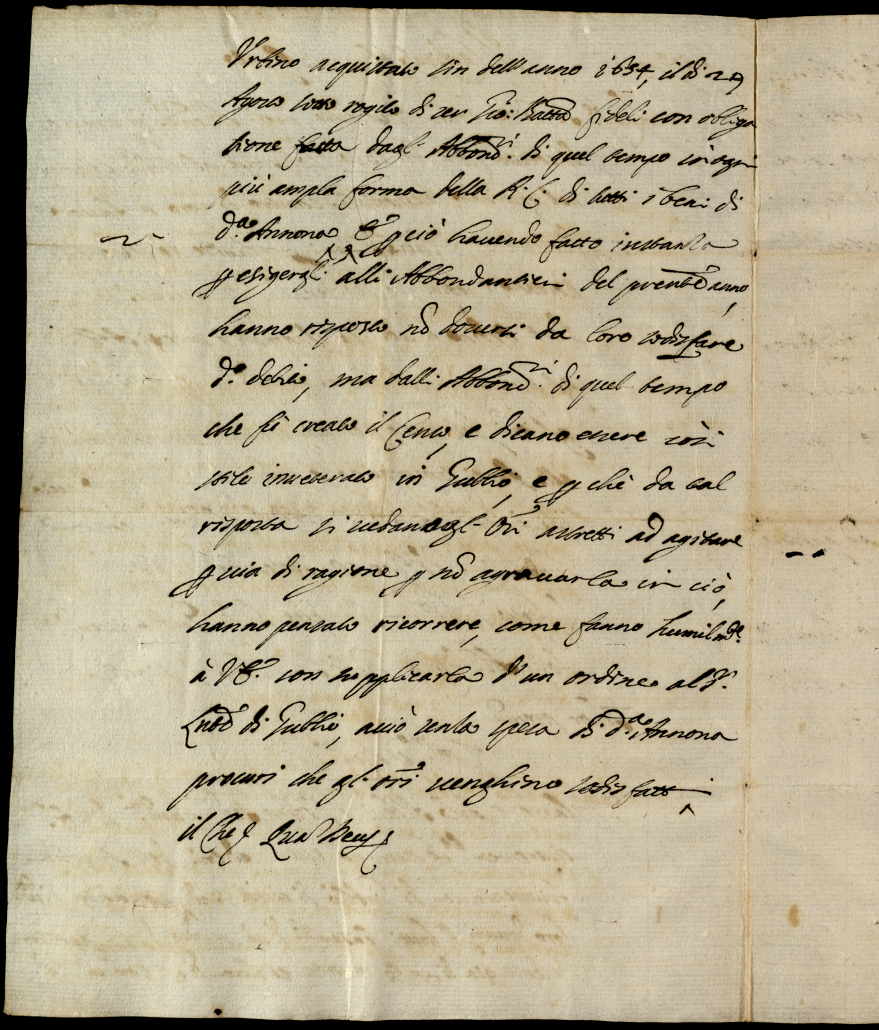 Urbino acquistato sin dell'anno 1654, il di 27
Agosto sotto rogito di ser Gio: Batta Fideli con obliga
tione fatta dagl' Abbond.ri di quel tempo in ogni
più ampla forma della R. C. di tutti i beni di
d.a Annona, e p ciò havendo fatto instanza
p esigergli alli Abbondantieri del presente anno,
hanno risposto nõ doversi da loro sodisfare
d.o debito, ma dalli Abbond.ri di quel tempo
che fù creato il Censo, e dicano essere così
stile inveterato in Gubbio, e p chè da tal
risposta si vedano gl' Ori astretti ad agitare
p via di ragione p nõ agravarla in ciò,
hanno pensato ricorrere, come fanno humilm.te
à V.E. con supplicarla d' un ordine al S.r
di Gubbio, acciò senza spesa di d.a Annona
procuri che gl' Ori venghino sodisfatti
il Che